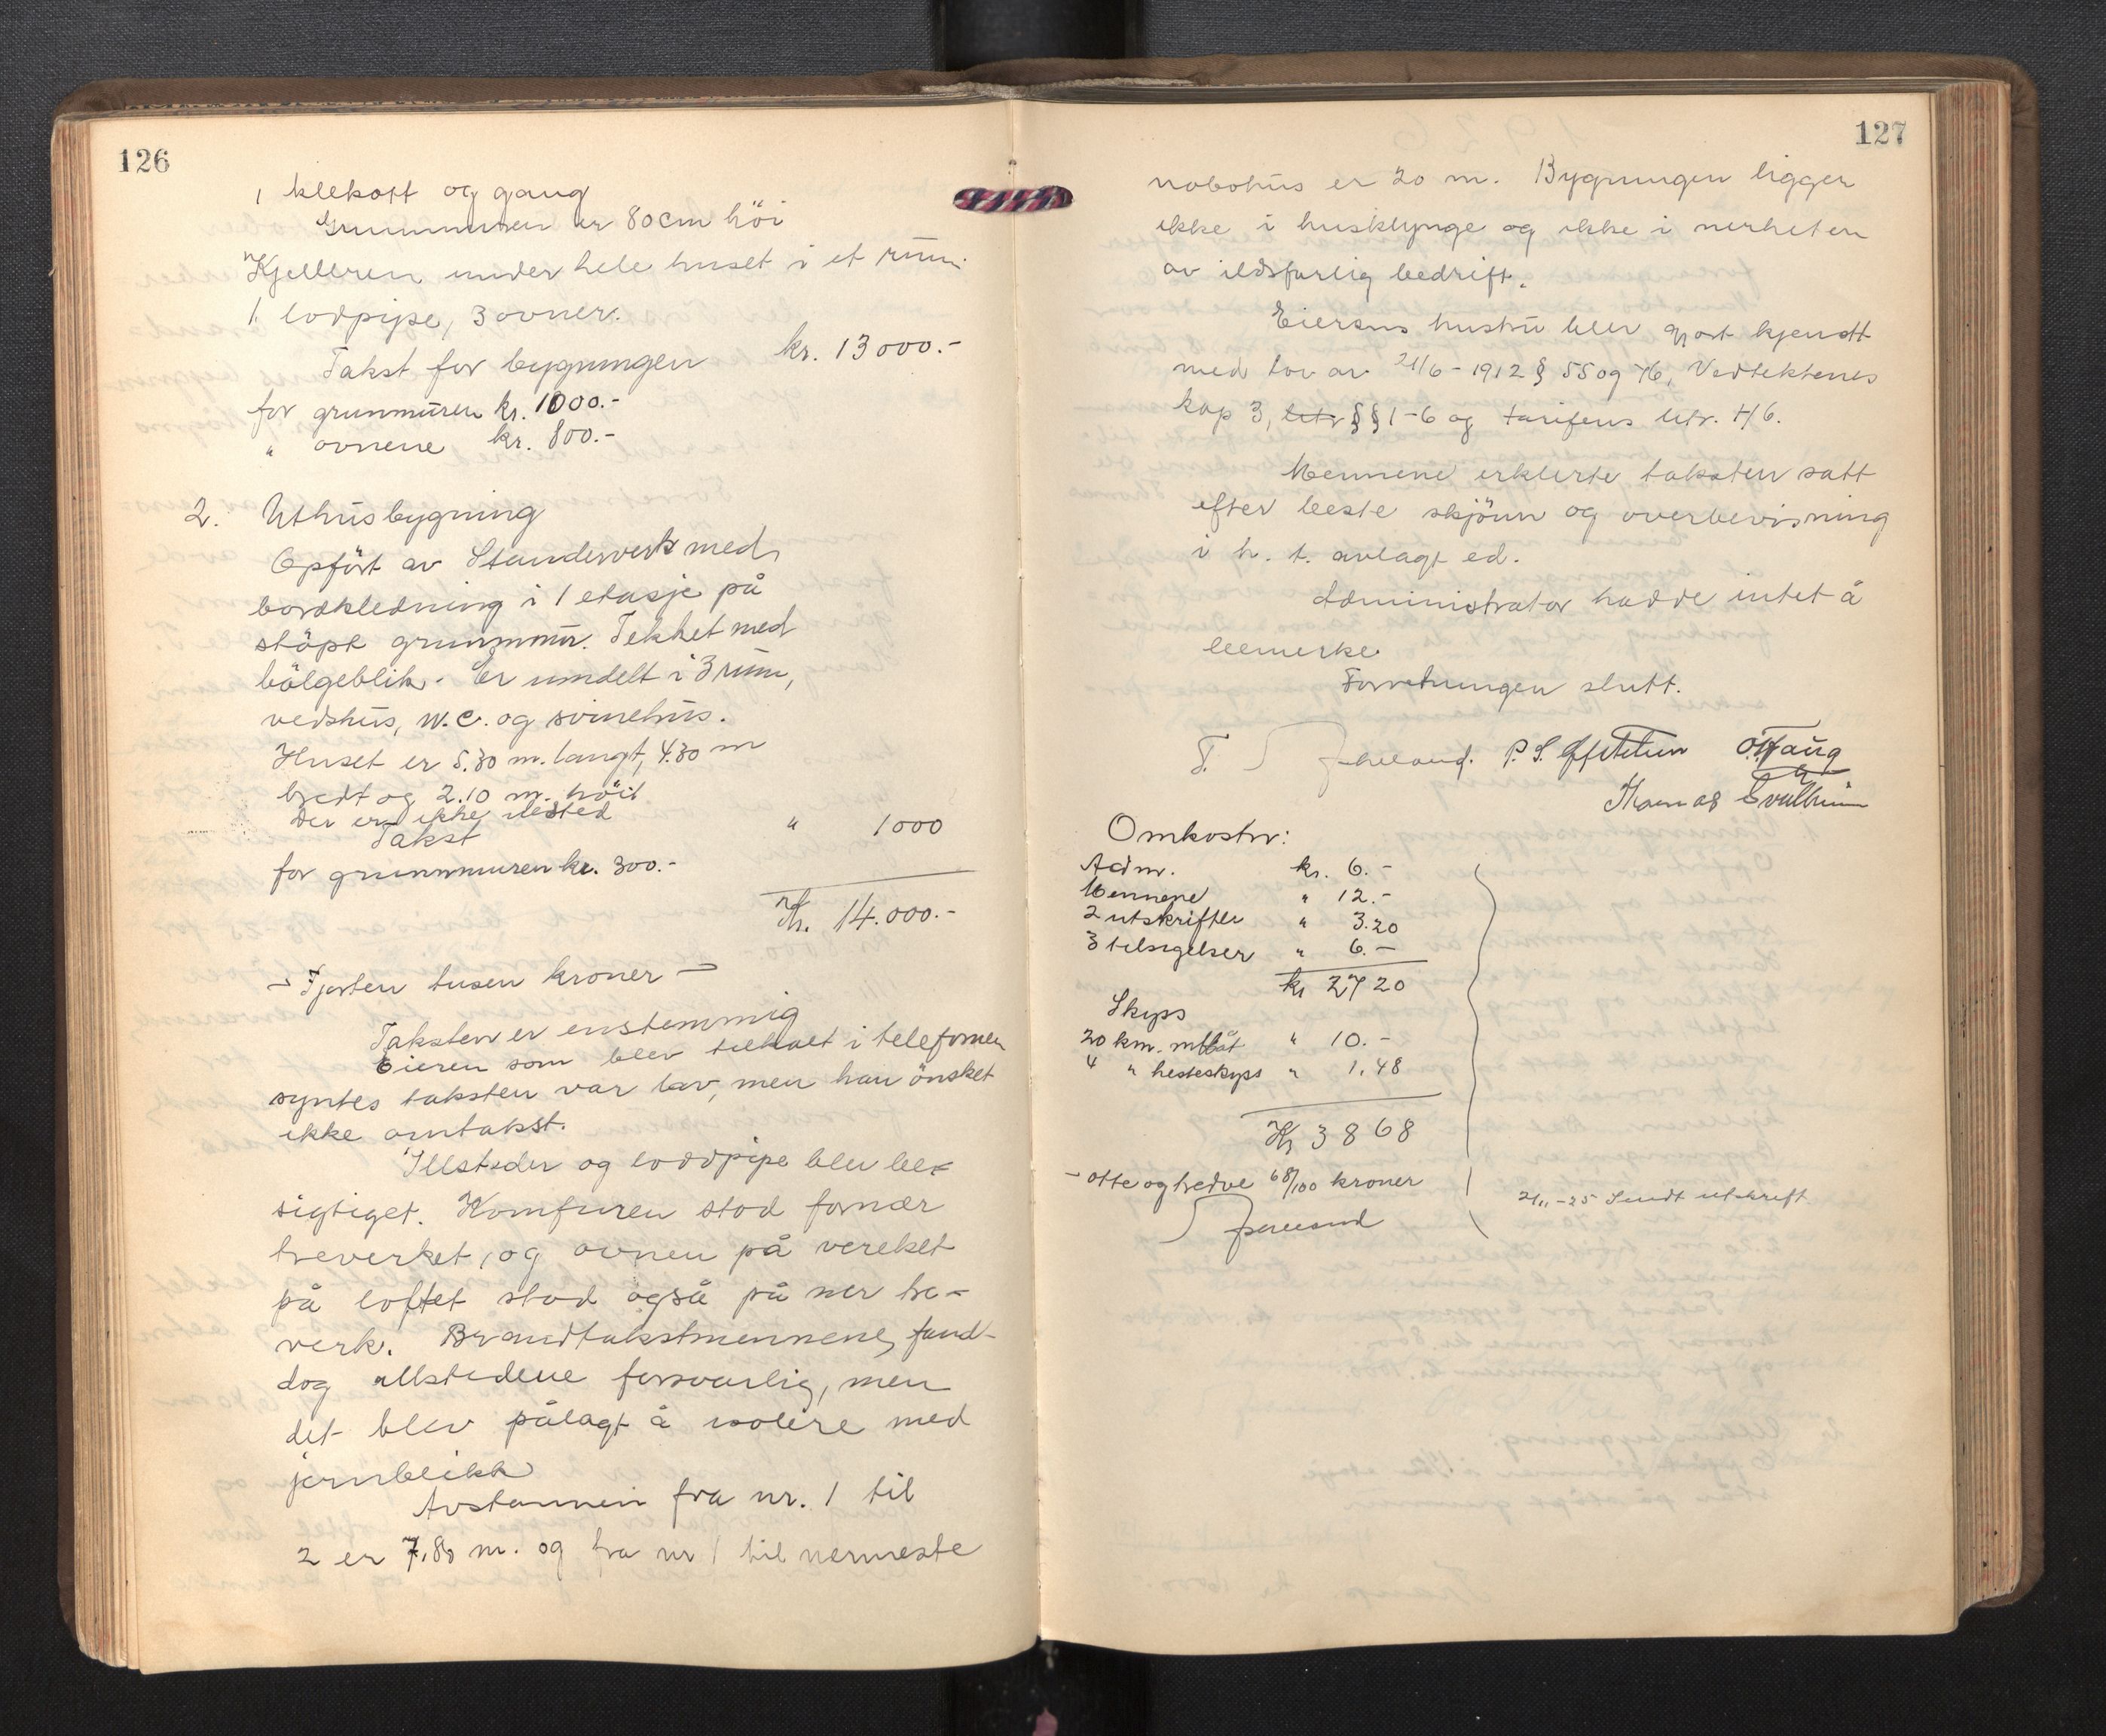 126
1 klekott og gang
Grunnmuren er 80cm höi
Kjelleren under hele huset i et rum
1 lodpipe, 3 ovner.
Takst for bygningen kr. 13000.-
for grunmuren kr. 1000.-
" ovnene kr. 800.-
2. Uthusbygning
Opfört av Standerverk med
bordkledning i 1 etasje på
stöpt grunnmur. Tekket med
bölgeblik. Er inndelt i 3 rum,
vedshus, W.C. og svinehus.
Huset er 5.30 m. langt, 4.30 m
bredt og 2.10 m. höit
der er ikke ilested
Takst " 1000
for grunnmuren kr. 300.-
Kr. 14.000.-
- Fjorten tusen kroner -
Taksten er enstemmig
Eieren som blev tilkalt i telefonen
syntes taksten var lav, men han önsket
ikke omtakst.
Illsteder og loddpipe blev be-
sigtiget. Komfuren stod for nær
treverket, og ovnen på verelset
på loftet stod også på nær tre-
verk. Brandtakstmennene fand
dog illstedene forsvarlig, men
det blev pålagt å isolere med
jernblikk
Avstannen fra nr. 1 til
2 er 7.80 m. og fra nr 1 til nermeste
127
nabohus er 20 m. Bygningen ligger
ikke i husklynge og ikke i nerheten
av ildsfarlig bedrift.
Eierens hustru blev gjort kjendt
med lov av 21/6-1912 § 55 og 76, Vedtektenes
kap 3, litr §§ 1-6 og tarifens litr. H6.
Mennene erklerte taksten satt
efter beste skjönn og overbevisning
i h. t. avlagt ed.
Administrator hadde intet å
bemerke.
Forretningen slutt.
T. P. S. O. Haug
Thomas
Omkostn:
Adm. kr. 6.-
Mennene " 12.-
2 utskrifter " 3.20
3 tilsigelser " 6.-
kr 27 20
Skyss
20 km. m/båt " 10.-
4 " hesteskyss " 1.48
Kr 38 68
- otte og tredve 68/100 kroner
21/11-25 Sendt utskrift